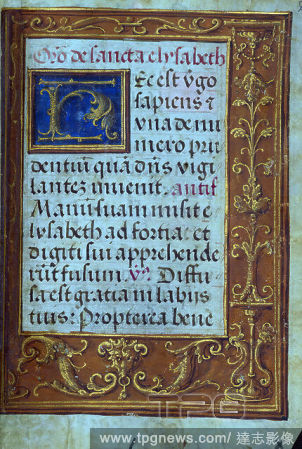 Oro de sancta elysabeth
Hec est vgo
sapiens ⁊
vna de nu
mero pru
dentiū quā dn̄s vigi
lantez inuenit. antif
Manū suam misit e
lysabeth ad fortia: et
digiti sui apprehende
rūt fusum. V̄ Diffu
sa est gratia in labijs
tuis: Propterea bene
TPG
www.tpgnews.com/達志影像